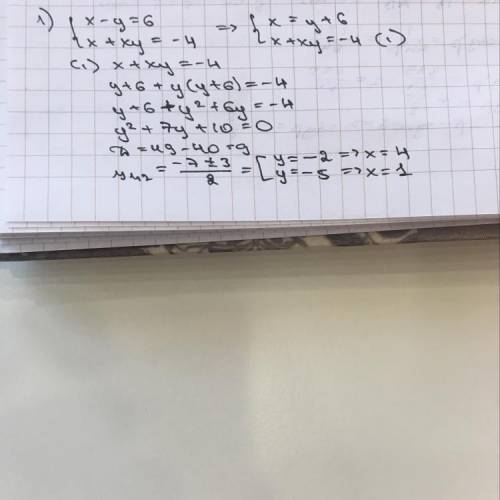 1) { x - y = 6 => { x = y + 6
x + xy = -4 x + xy = -4 (1)
(1) x + xy = -4
y + 6 + y(y + 6) = -4
y + 6 + y² + 6y = -4
y² + 7y + 10 = 0
D = 49 - 40 = 9
y₁,₂ = (-7 ± 3)/2 = [ y = -2 => x = 4
y = -5 => x = 1